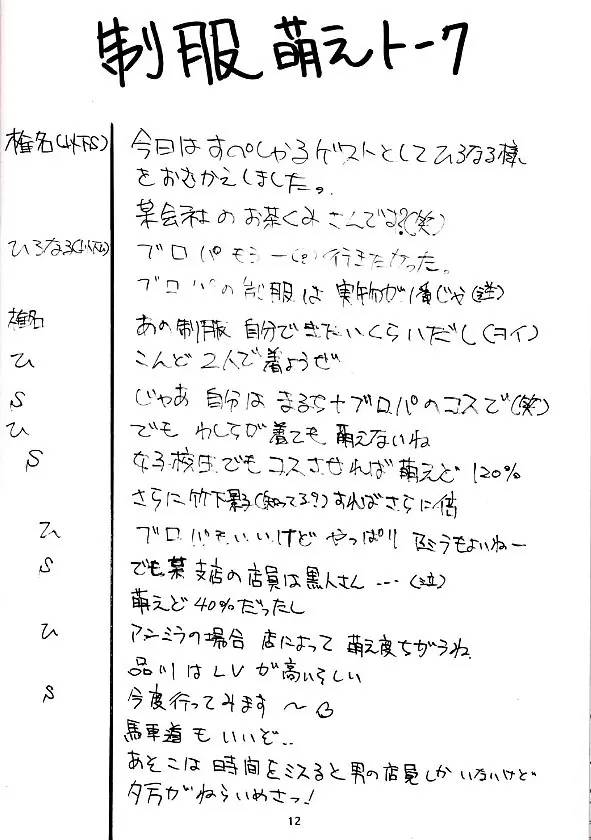 制服 萌えトーク
椎名(以下S) 今日はすぺしゃるゲストとしてひろなる様
をおむかえしました。
某会社のお茶くみさんでしょ?(笑)
ひろなる(以下ひ) ブロパもう一(?)行きたかった。
ブロパの制服は実物が1番じゃ(注)
椎名 あの制服 自分できたいくらいだし(ヨイ)
ひ こんど2人で着ようぜ
S じゃあ 自分は まるち+ブロパのコスで(笑)
ひ でも わしらが着ても 萌えないね
S 女子校生でもコスさせれば萌えど 120%
さらに竹下 (知ってる?)すればさらに倍
ひ ブロパもいいけど やっぱり もよいねー
S でも某支店の店員は黒人さん…(泣)
萌えど 40%だったし
ひ アンミラの場合 店によって 萌え度ちがうね
品川はLVが高いらしい
S 今度行ってみます～
馬車道もいいぞ..
あそこは時間をミスると男の店員しかいないけど
夕方がねらいめさっ!
12